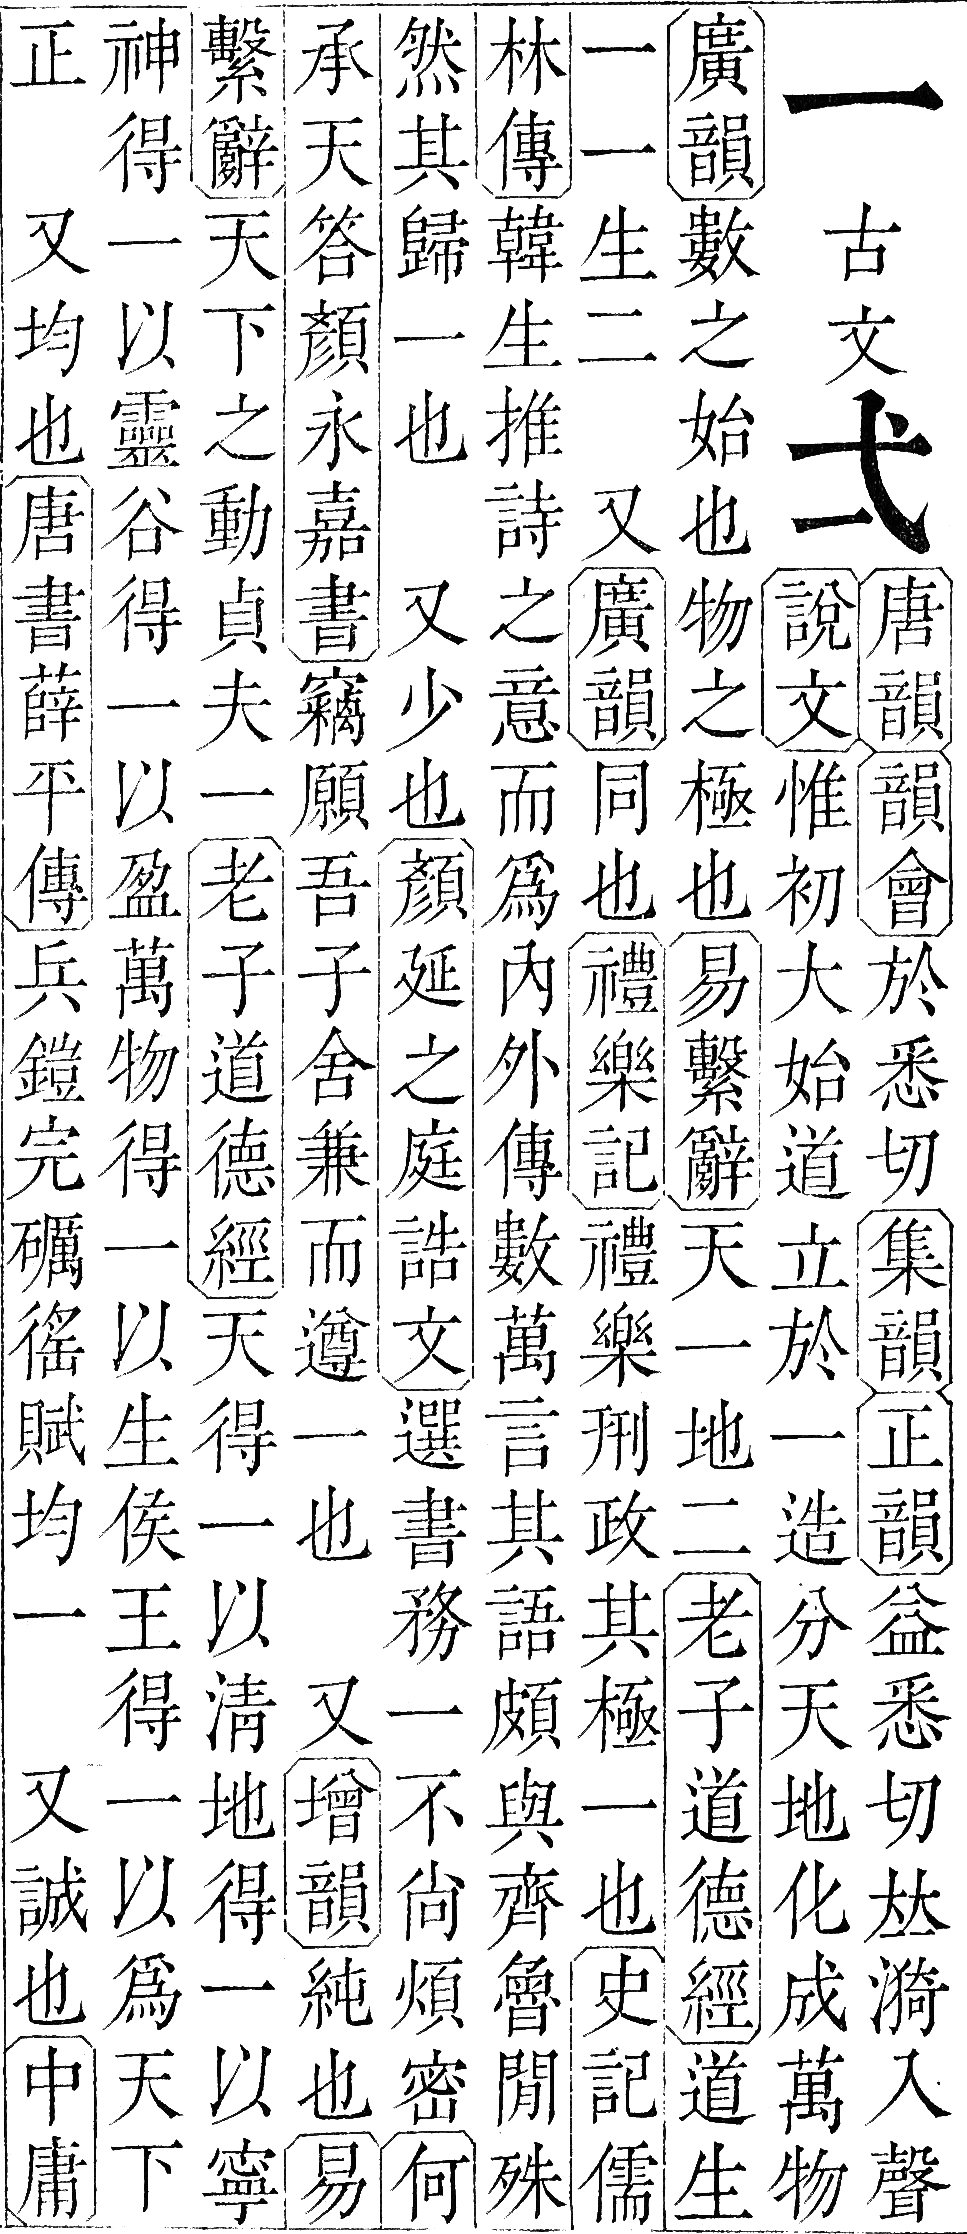 一 古文 弌
唐韻韻會於悉切集韻正韻益悉切𠀤漪入聲
說文惟初大始道立於一造分天地化成萬物
廣韻數之始也物之極也易繫辭天一地二老子道德經道生
一一生二 又廣韻同也禮樂記禮樂刑政其極一也史記儒
林傳韓生推詩之意而爲內外傳數萬言其語頗與齊魯閒殊
然其歸一也 又少也顏延之庭誥文選書務一不尚煩密何
承天答顏永嘉書竊願吾子舍兼而遵一也 又增韻純也易
繫辭天下之動貞夫一老子道德經天得一以淸地得一以寧
神得一以靈谷得一以盈萬物得一以生侯王得一以爲天下
正 又均也唐書薛平傳兵鎧完礪徭賦均一 又誠也中庸